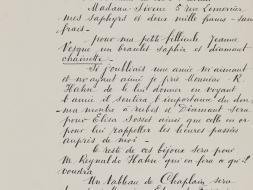 Madame Sivene 5 rue Lemercier
mes saphyrs et deux mille francs - sans
frais -
pour ma petite filleule Jeanne
Vesque un bracelet saphir et diamant
chainette -
Si j'oubliais une amie m'aimant
et m'ayant aimé je prie Monsieur R.
Hahn de le lui donner en voyant
l'amie il sentira l'importance du don
ma montre à rubis et Diamant sera
pour Elisa Sosset ainsi que celle en or
pour lui rappeller les heures passées
auprès de moi -
le reste de ces bijoux sera pour
M. Reynaldo Hahn qui en fera ce qu'il
voudra
Un tableau de Chaplain sera